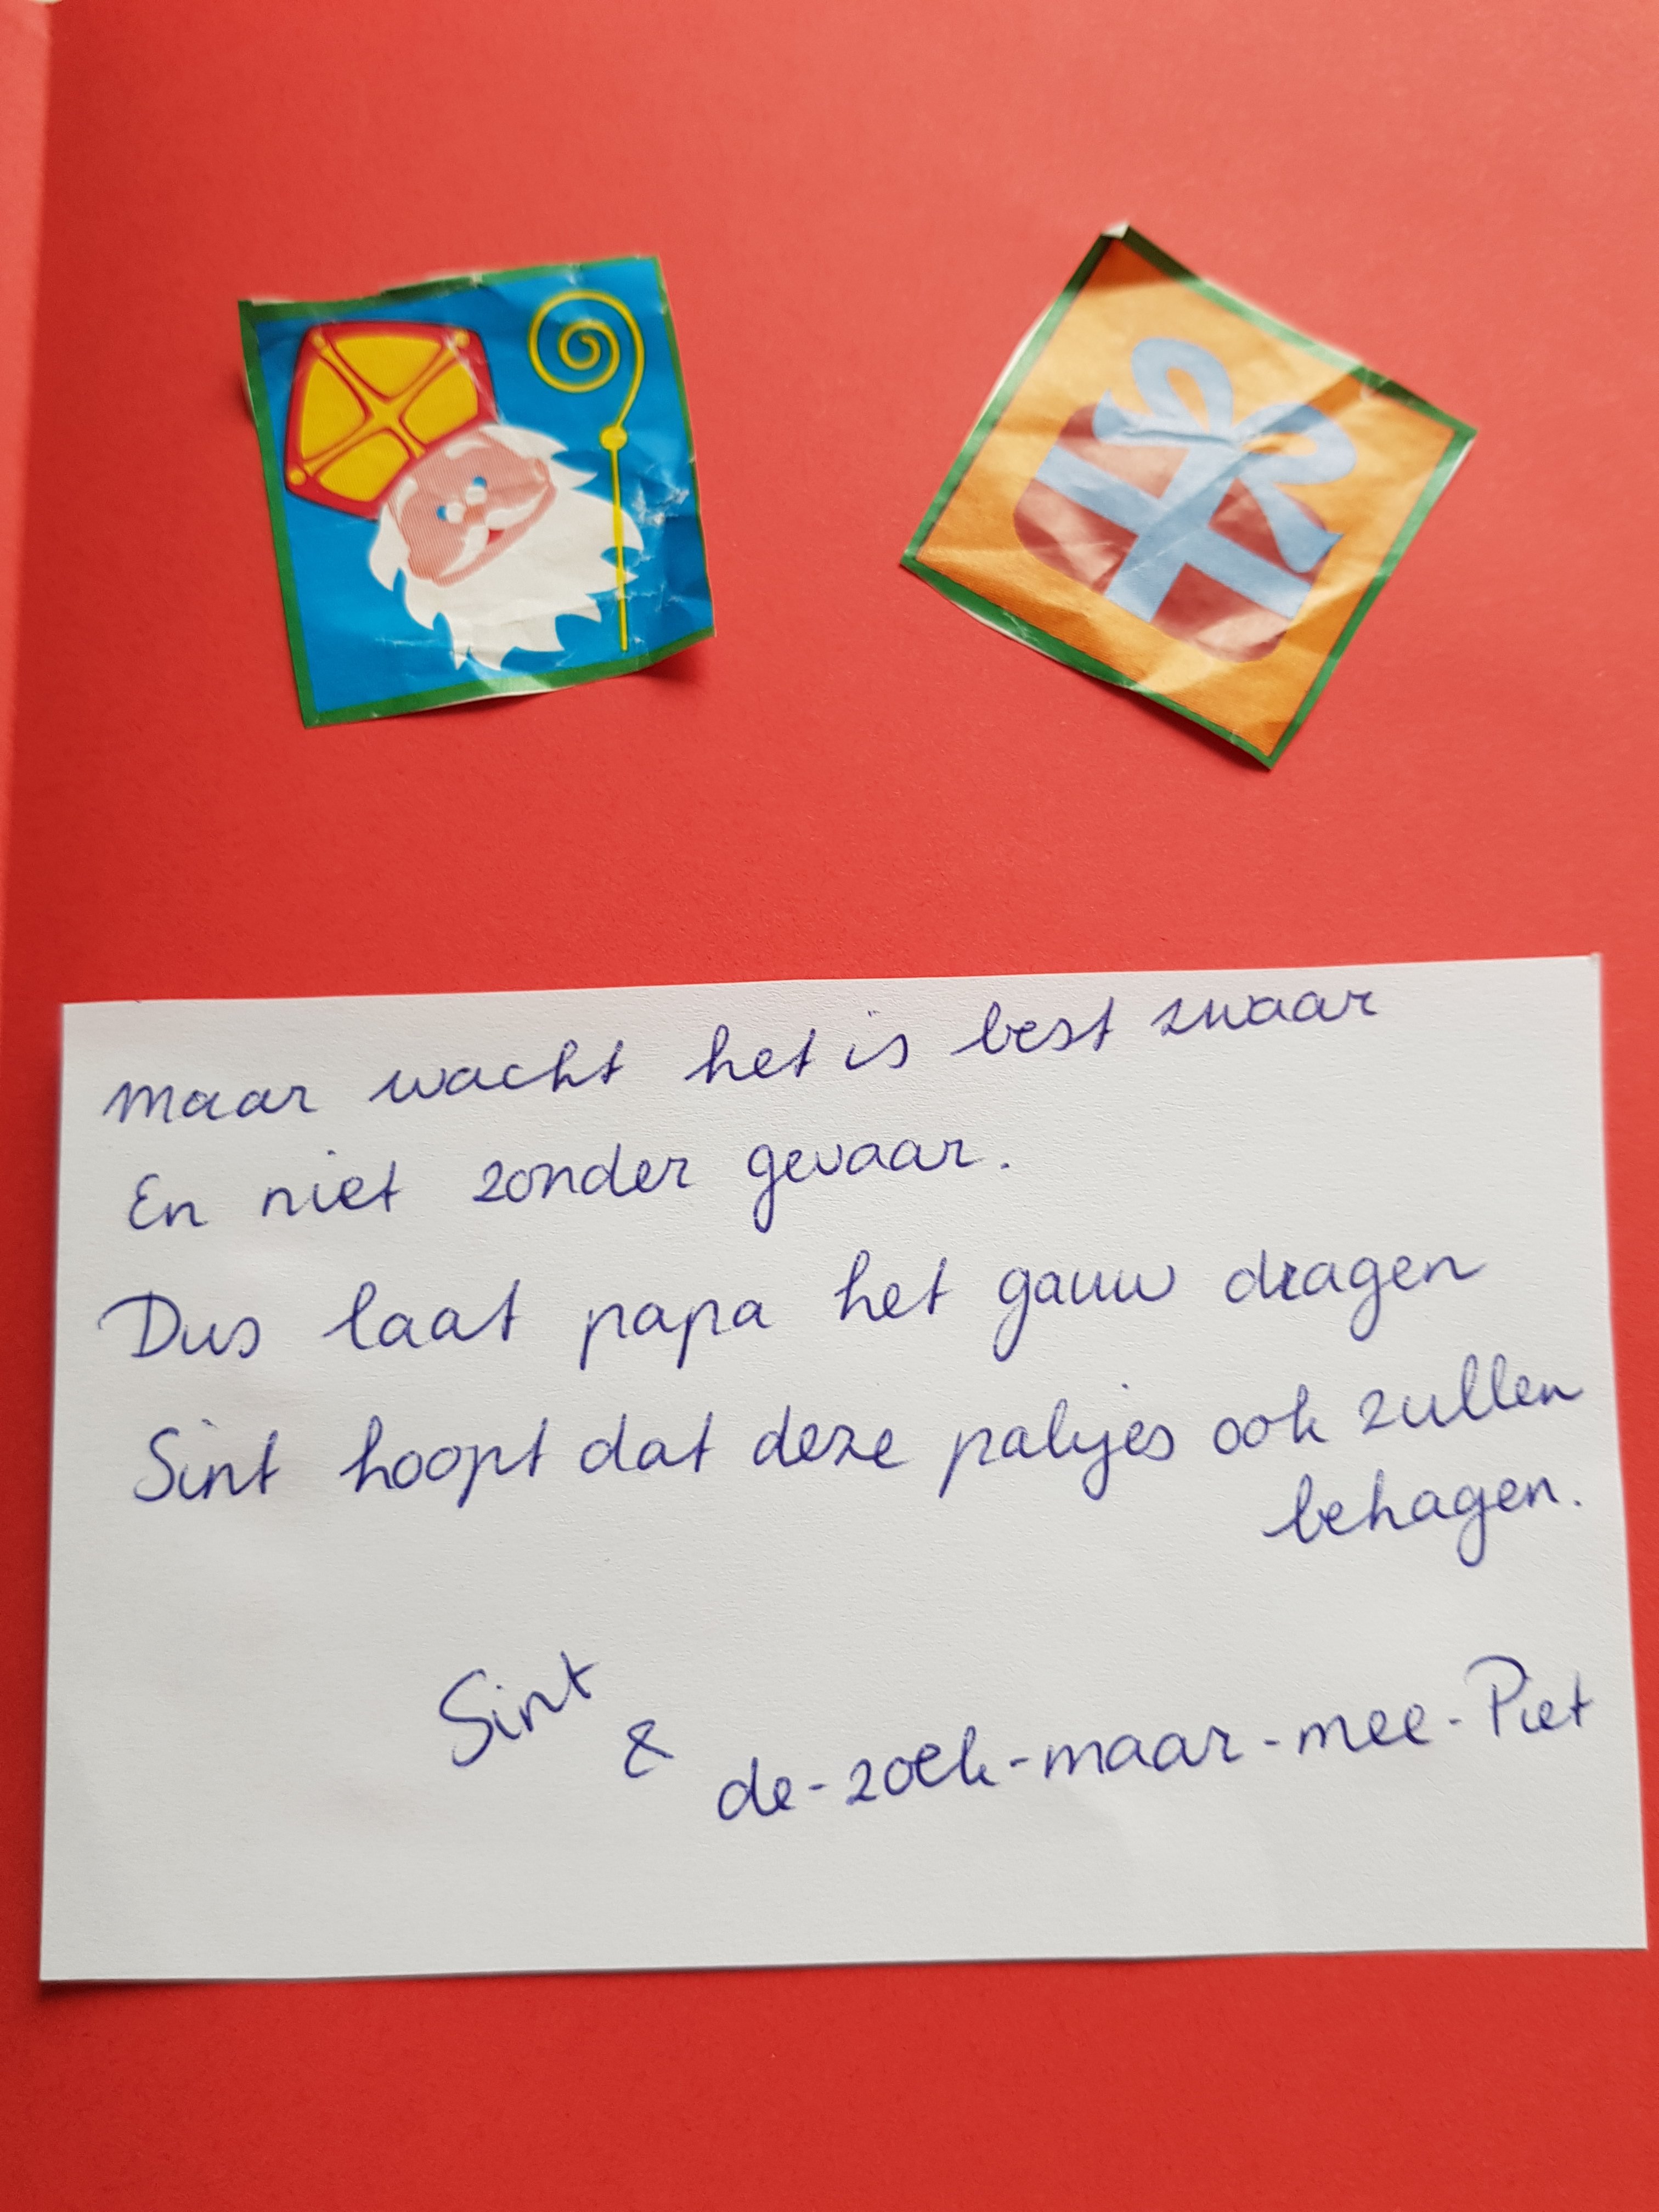 maar wacht het is best zwaar
En niet zonder gevaar.
Dus laat papa het gauw dragen
Sint hoopt dat deze pakjes ook zullen
behagen.
Sint
&
de-zoek-maar-mee-Piet